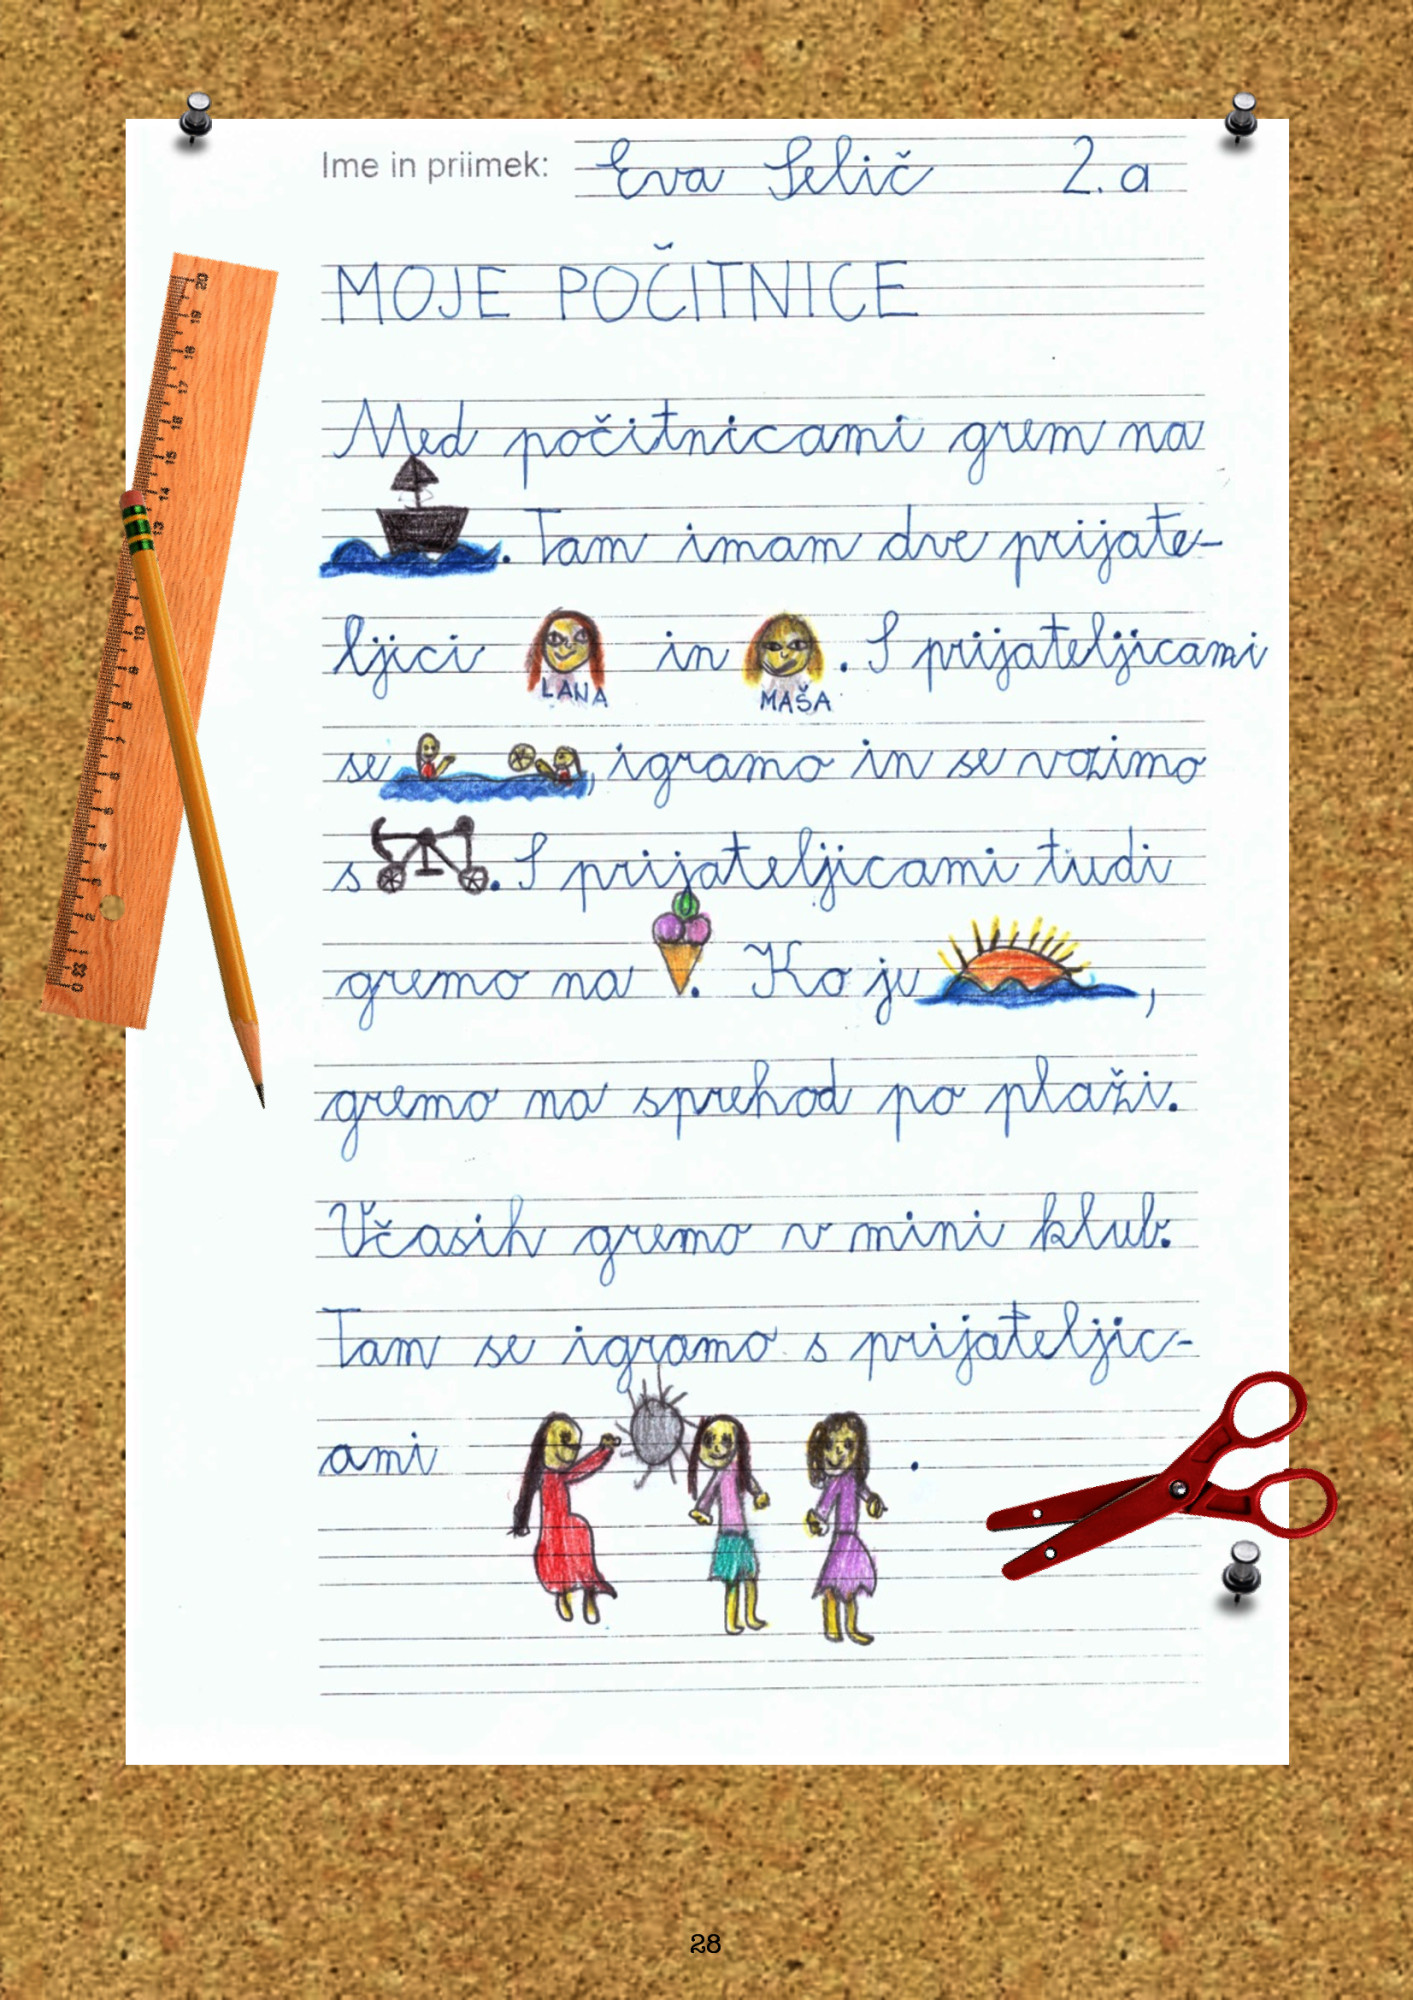 Ime in priimek: Eva Selič 2. a
MOJE POČITNICE
Med počitnicami grem na
. Tam imam dve prijate-
ljici in . S prijateljicami
LANA MAŠA
se , igramo in se vozimo
s . S prijateljicami tudi
gremo na . Ko je ,
gremo na sprehod po plaži.
Včasih gremo v mini klub.
Tam se igramo s prijateljic-
ami .
28